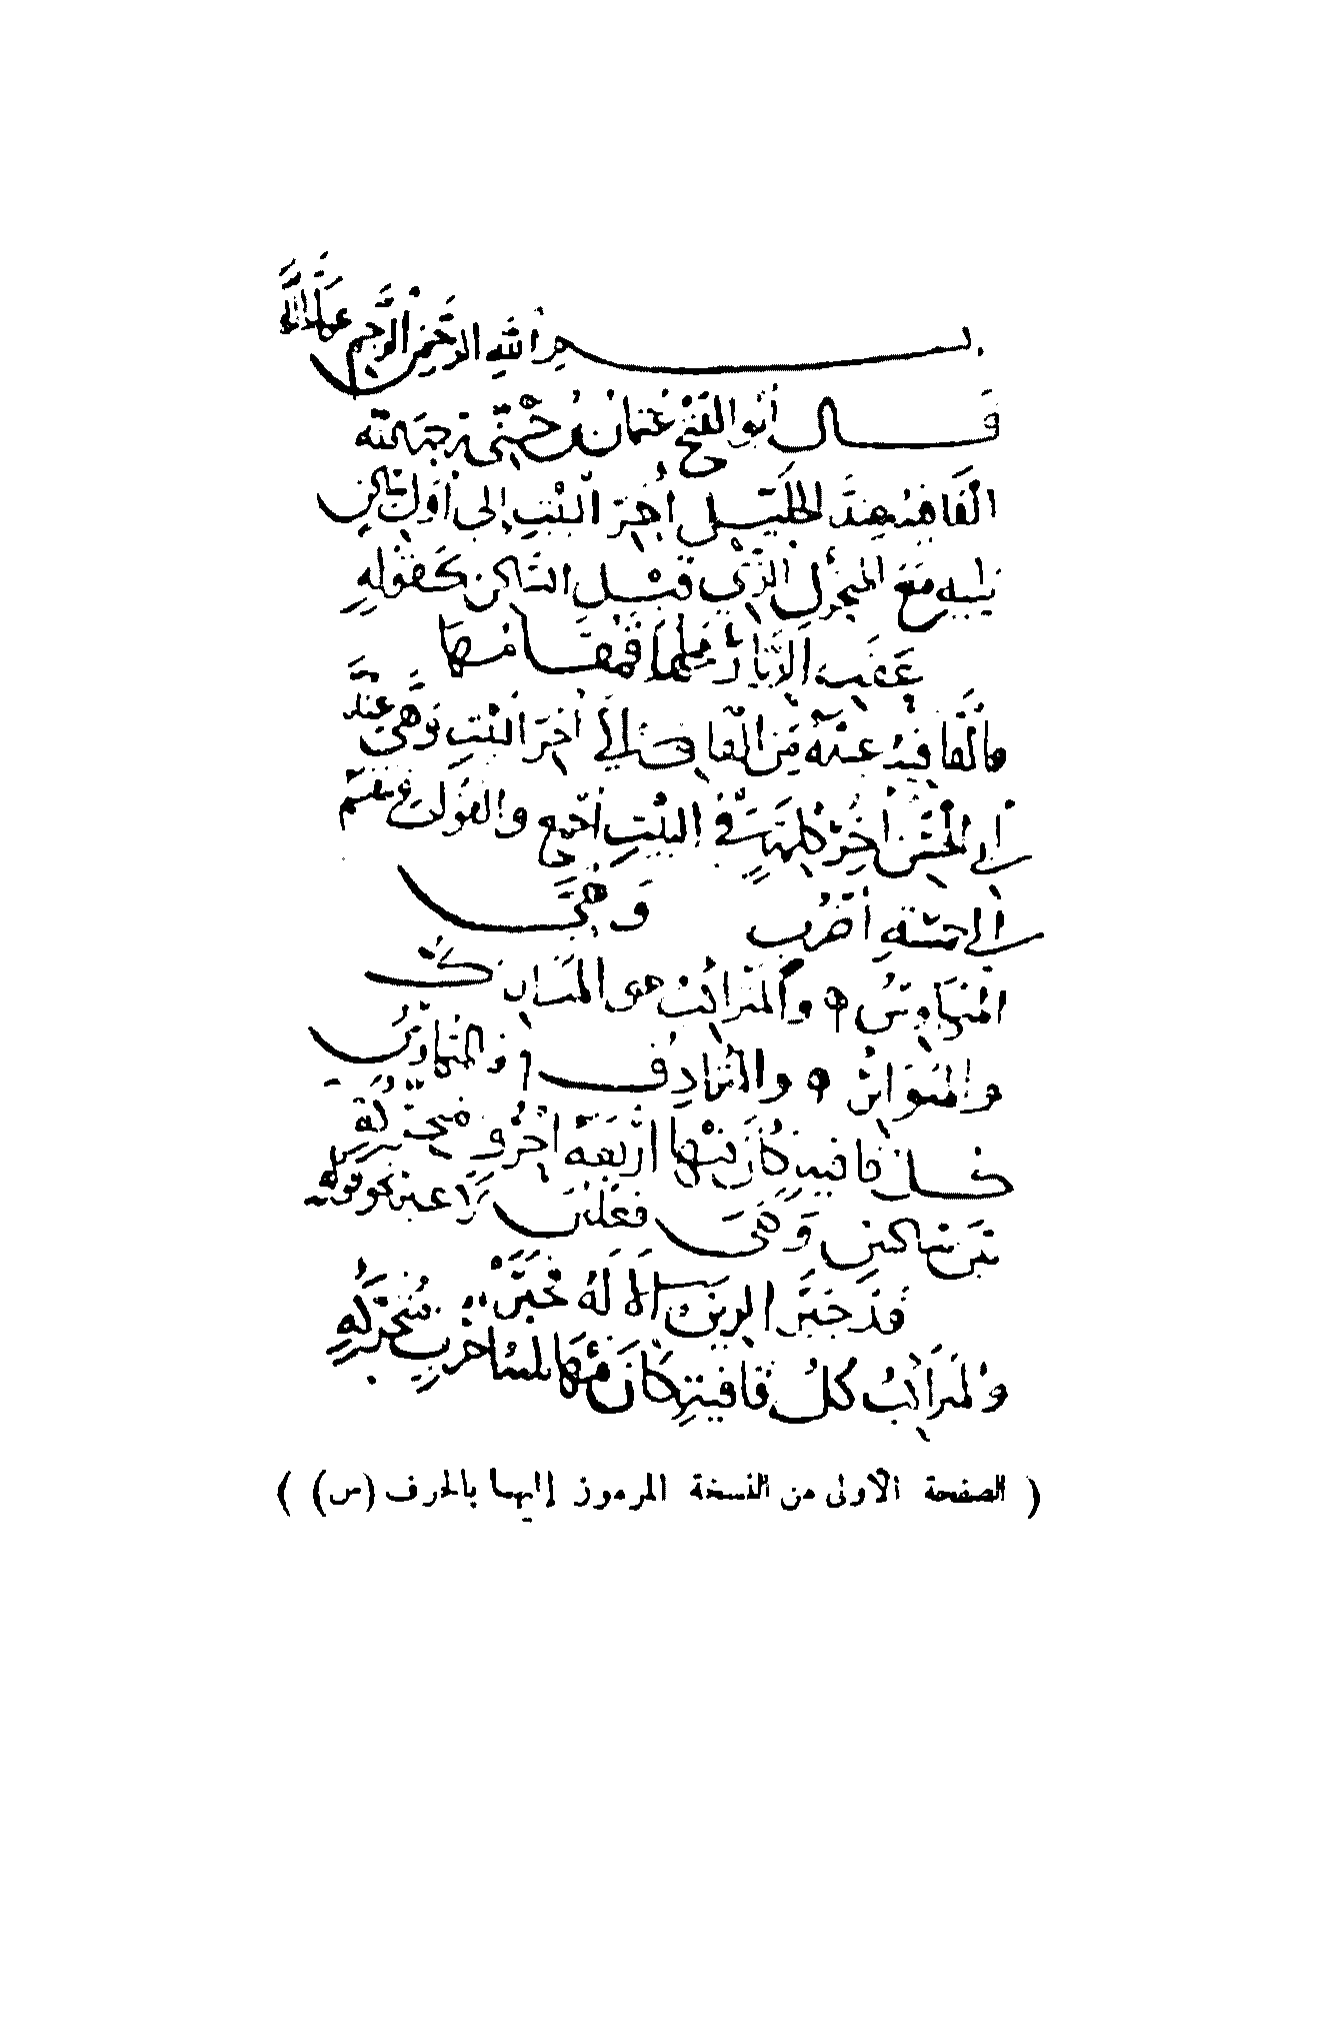 بسم الله الرحمن الرحيم
قال أبو الفتح عثمان بن جني رحمه الله
القافية عند الخليل آخر البيت إلى أول ساكن
يليه مع المتحرك الذي قبل الساكن كقوله
عفت الديار محلها فمقامها
فالقافية عنده من القاف إلى آخر البيت وهي عند
أبي الحسن آخر كلمة في البيت أجمع والقول
إلى خمسة أضرب وهي
المتكاوس والمتراكب والمتدارك
والمتواتر والمترادف فالمتكاوس
كل قافية كان فيها أربعة أحرف متحركة
بين ساكنين وهي فعلتن نحو قوله
قد جبر الدين الإله فجبر
والمتراكب كل قافية كان فيها ثلاثة أحرف متحركة
( الصفحة الأولى من النسخة المرموز إليها بالحرف (س) )